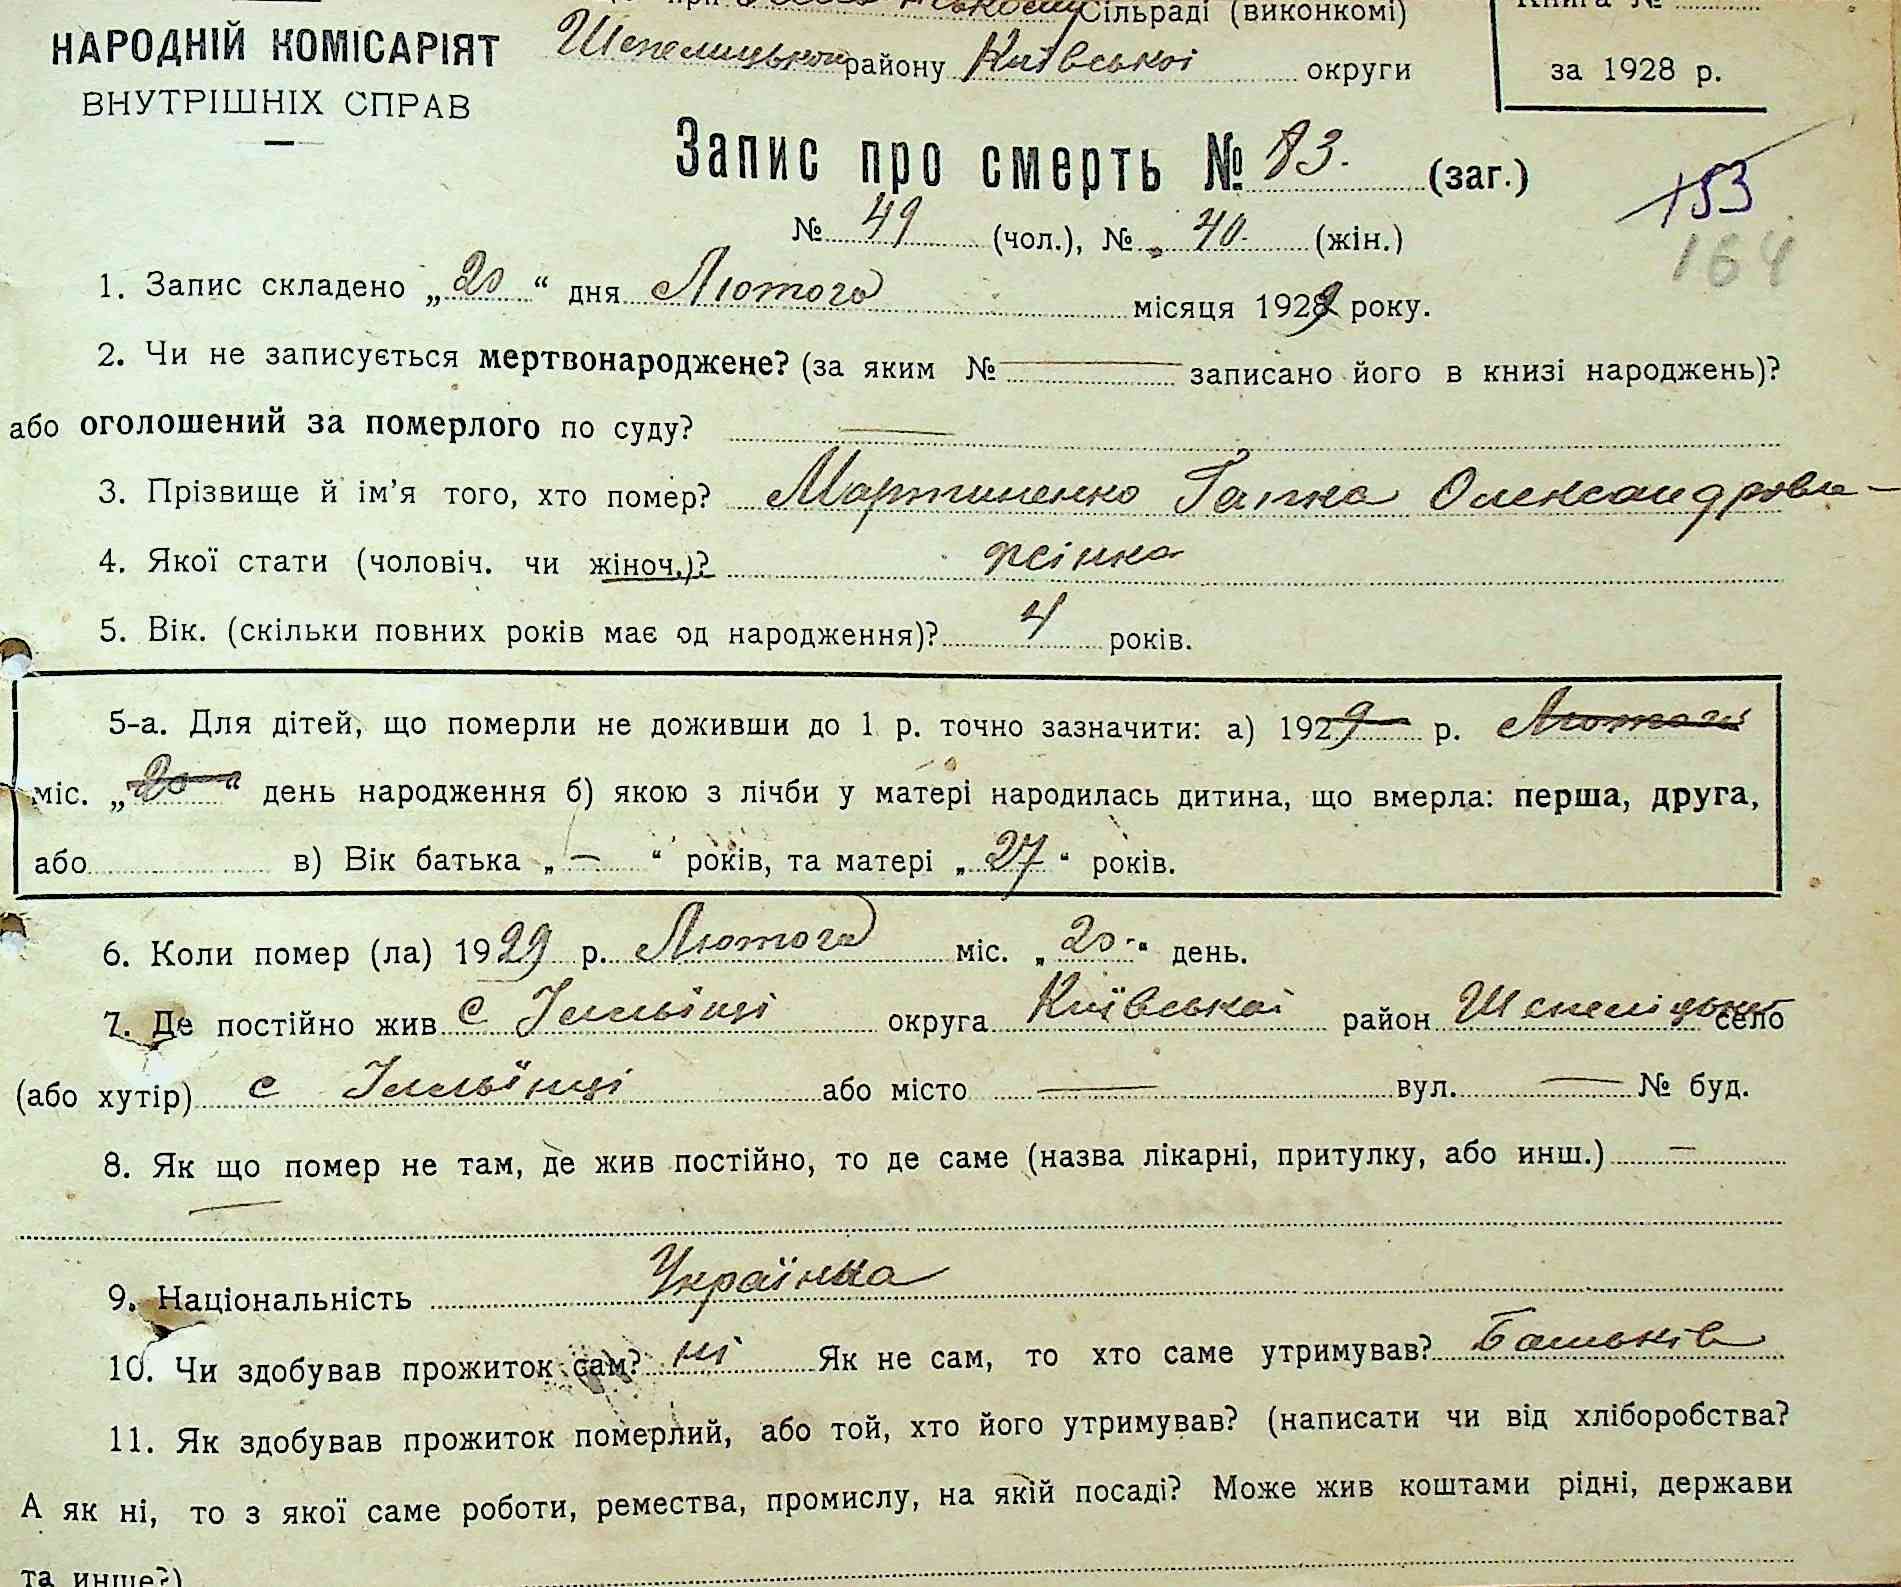 Сільраді (виконкомі)
Книга №
НАРОДНІЙ КОМІСАРІЯТ
ВНУТРІШНІХ СПРАВ
Шепелицького району Київської округи
за 1928 р.
Запис про смерть № 83. (заг.)
153
164
№ 49 (чол.), № 40. (жін.)
1. Запис складено „20“ дня Лютого місяця 1929 року.
2. Чи не записується мертвонароджене? (за яким № — записано його в книзі народжень)?
або оголошений за померлого по суду? —
3. Прізвище й ім’я того, хто помер? Мартиненко Гапка Олександровна
4. Якої стати (чоловіч. чи жіноч.)? жінка
5. Вік. (скільки повних років має од народження)? 4 років.
5-а. Для дітей, що померли не доживши до 1 р. точно зазначити: а) 1929 р. Лютого
міс. „20“ день народження б) якою з лічби у матері народилась дитина, що вмерла: перша, друга,
або в) Вік батька „—“ років, та матері „27“ років.
6. Коли помер (ла) 1929 р. Лютого міс. „20“ день.
7. Де постійно жив с Ільїнці округа Київської район Шепеліцького село
(або хутір) с Ільїнці або місто — вул. — № буд.
8. Як що помер не там, де жив постійно, то де саме (назва лікарні, притулку, або инш.) —
—
9. Національність Українка
10. Чи здобував прожиток сам? ні Як не сам, то хто саме утримував? Батьків
11. Як здобував прожиток померлий, або той, хто його утримував? (написати чи від хліборобства?
А як ні, то з якої саме роботи, ремества, промислу, на якій посаді? Може жив коштами рідні, держави
та инше?)